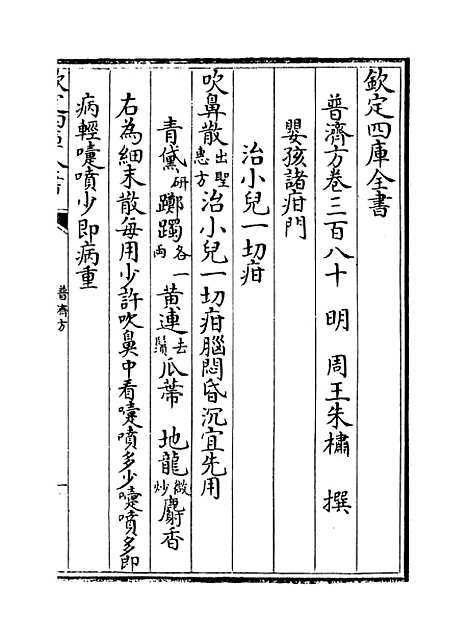 欽定四庫全書
普濟方卷三百八十 明 周王朱橚 撰
嬰孩諸疳門
治小兒一切疳
吹鼻散出聖惠方治小兒一切疳腦悶昏沉宜先用
青黛研躑躅各一兩黃連去鬚瓜蔕 地龍微炒麝香
右為細末散每用少許吹鼻中看嚏噴多少嚏噴多即
病輕嚏噴少即病重
普濟方
一